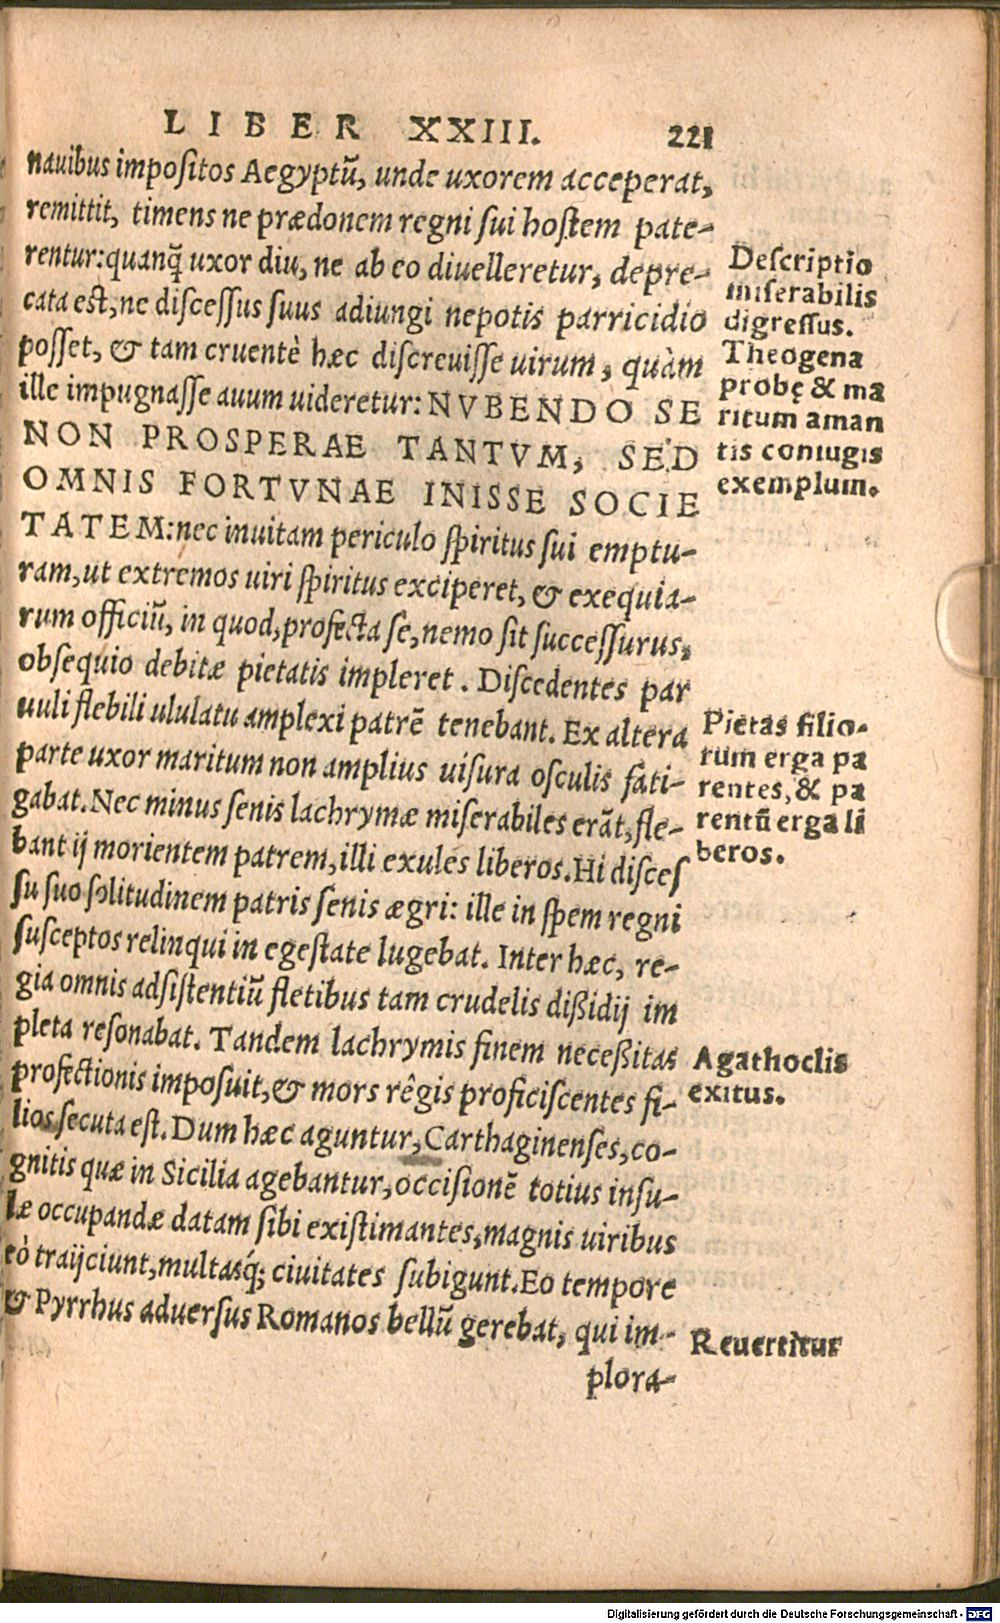 LIBER XXIII. 221
nauibus impositos Aegyptū, unde uxorem acceperat,
remittit, timens ne prædonem regni sui hostem pate-
rentur: quanq̃ uxor diu, ne ab eo diuelleretur, depre-
cata est, ne discessus suus adiungi nepotis parricidio
posset, & tam cruentè hæc discreuisse uirum, quàm
ille impugnasse auum uideretur: NVBENDO SE
NON PROSPERAE TANTVM, SED
OMNIS FORTVNAE INISSE SOCIE
TATEM: nec inuitam periculo spiritus sui emptu-
ram, ut extremos uiri spiritus exciperet, & exequia-
rum officiū, in quod, profecta se, nemo sit successurus,
obsequio debitæ pietatis impleret. Discedentes par
uuli flebili ululatu amplexi patrē tenebant. Ex altera
parte uxor maritum non amplius uisura osculis fati-
gabat. Nec minus senis lachrymæ miserabiles erāt, fle-
bant ij morientem patrem, illi exules liberos. Hi disces
su suo solitudinem patris senis ægri: ille in spem regni
susceptos relinqui in egestate lugebat. Inter hæc, re-
gia omnis adsistentiū fletibus tam crudelis dißidij im
pleta resonabat. Tandem lachrymis finem neceßitas
profectionis imposuit, & mors rêgis proficiscentes fi-
lios secuta est. Dum hæc aguntur, Carthaginenses, co-
gnitis quæ in Sicilia agebantur, occisionē totius insu-
læ occupandæ datam sibi existimantes, magnis uiribus
eò traijciunt, multasq́; ciuitates subigunt. Eo tempore
& Pyrrhus aduersus Romanos bellū gerebat, qui im-
plora-
Descriptio
miserabilis
digressus.
Theogena
probę & ma
ritum aman
tis coniugis
exemplum.
Pietas filio-
rum erga pa
rentes, & pa
rentū erga li
beros.
Agathoclis
exitus.
Reuertitur
Digitalisierung gefördert durch die Deutsche Forschungsgemeinschaft - DFG